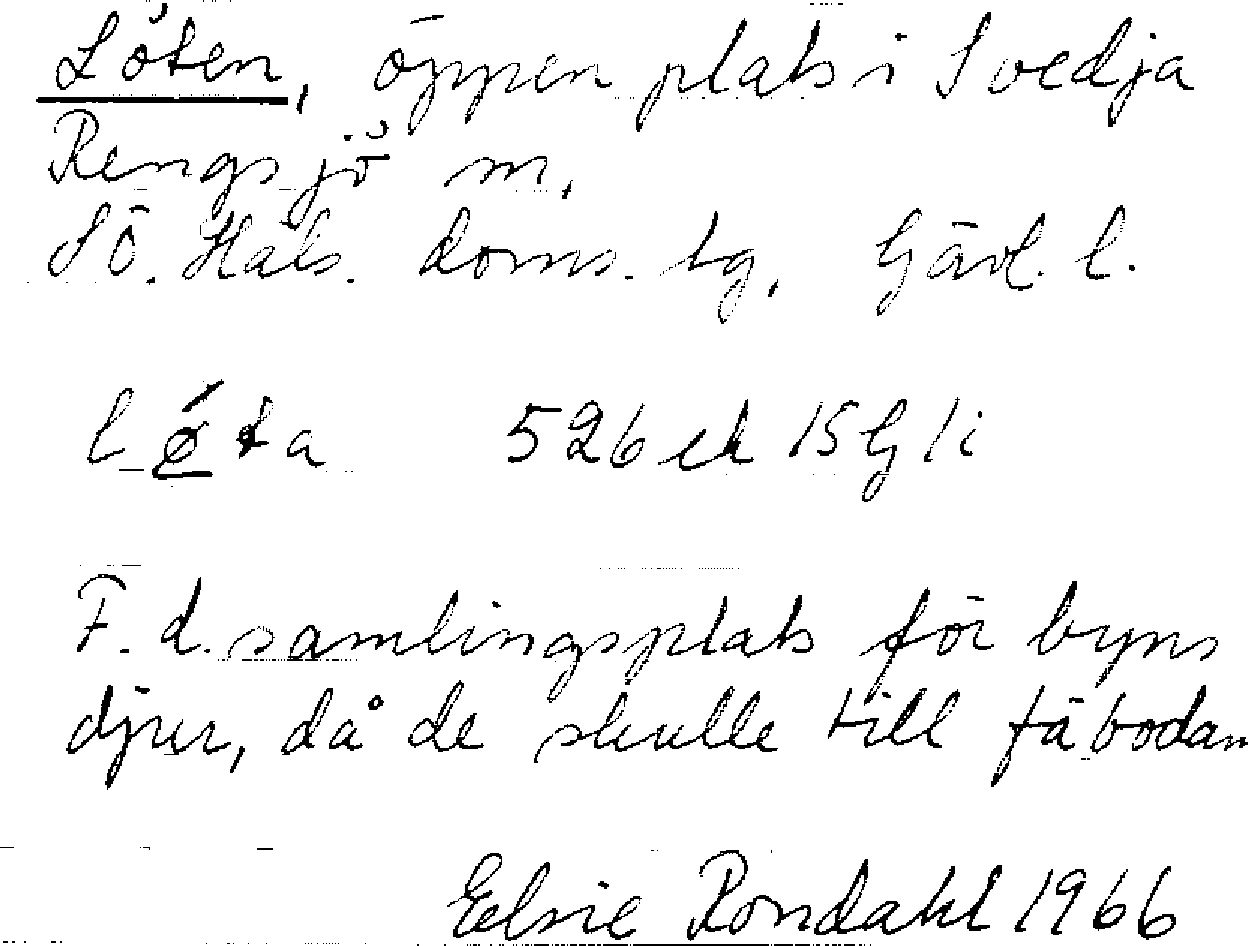 Löten, öppen plats i Svedja
Rengsjö m,
SÖ. Häls. doms. tg, Gävl. l.
526 ek 15G 1i
F. d. samlingsplats för byns
djur, då de skulle till fäbodan
Elsie Rondahl 1966